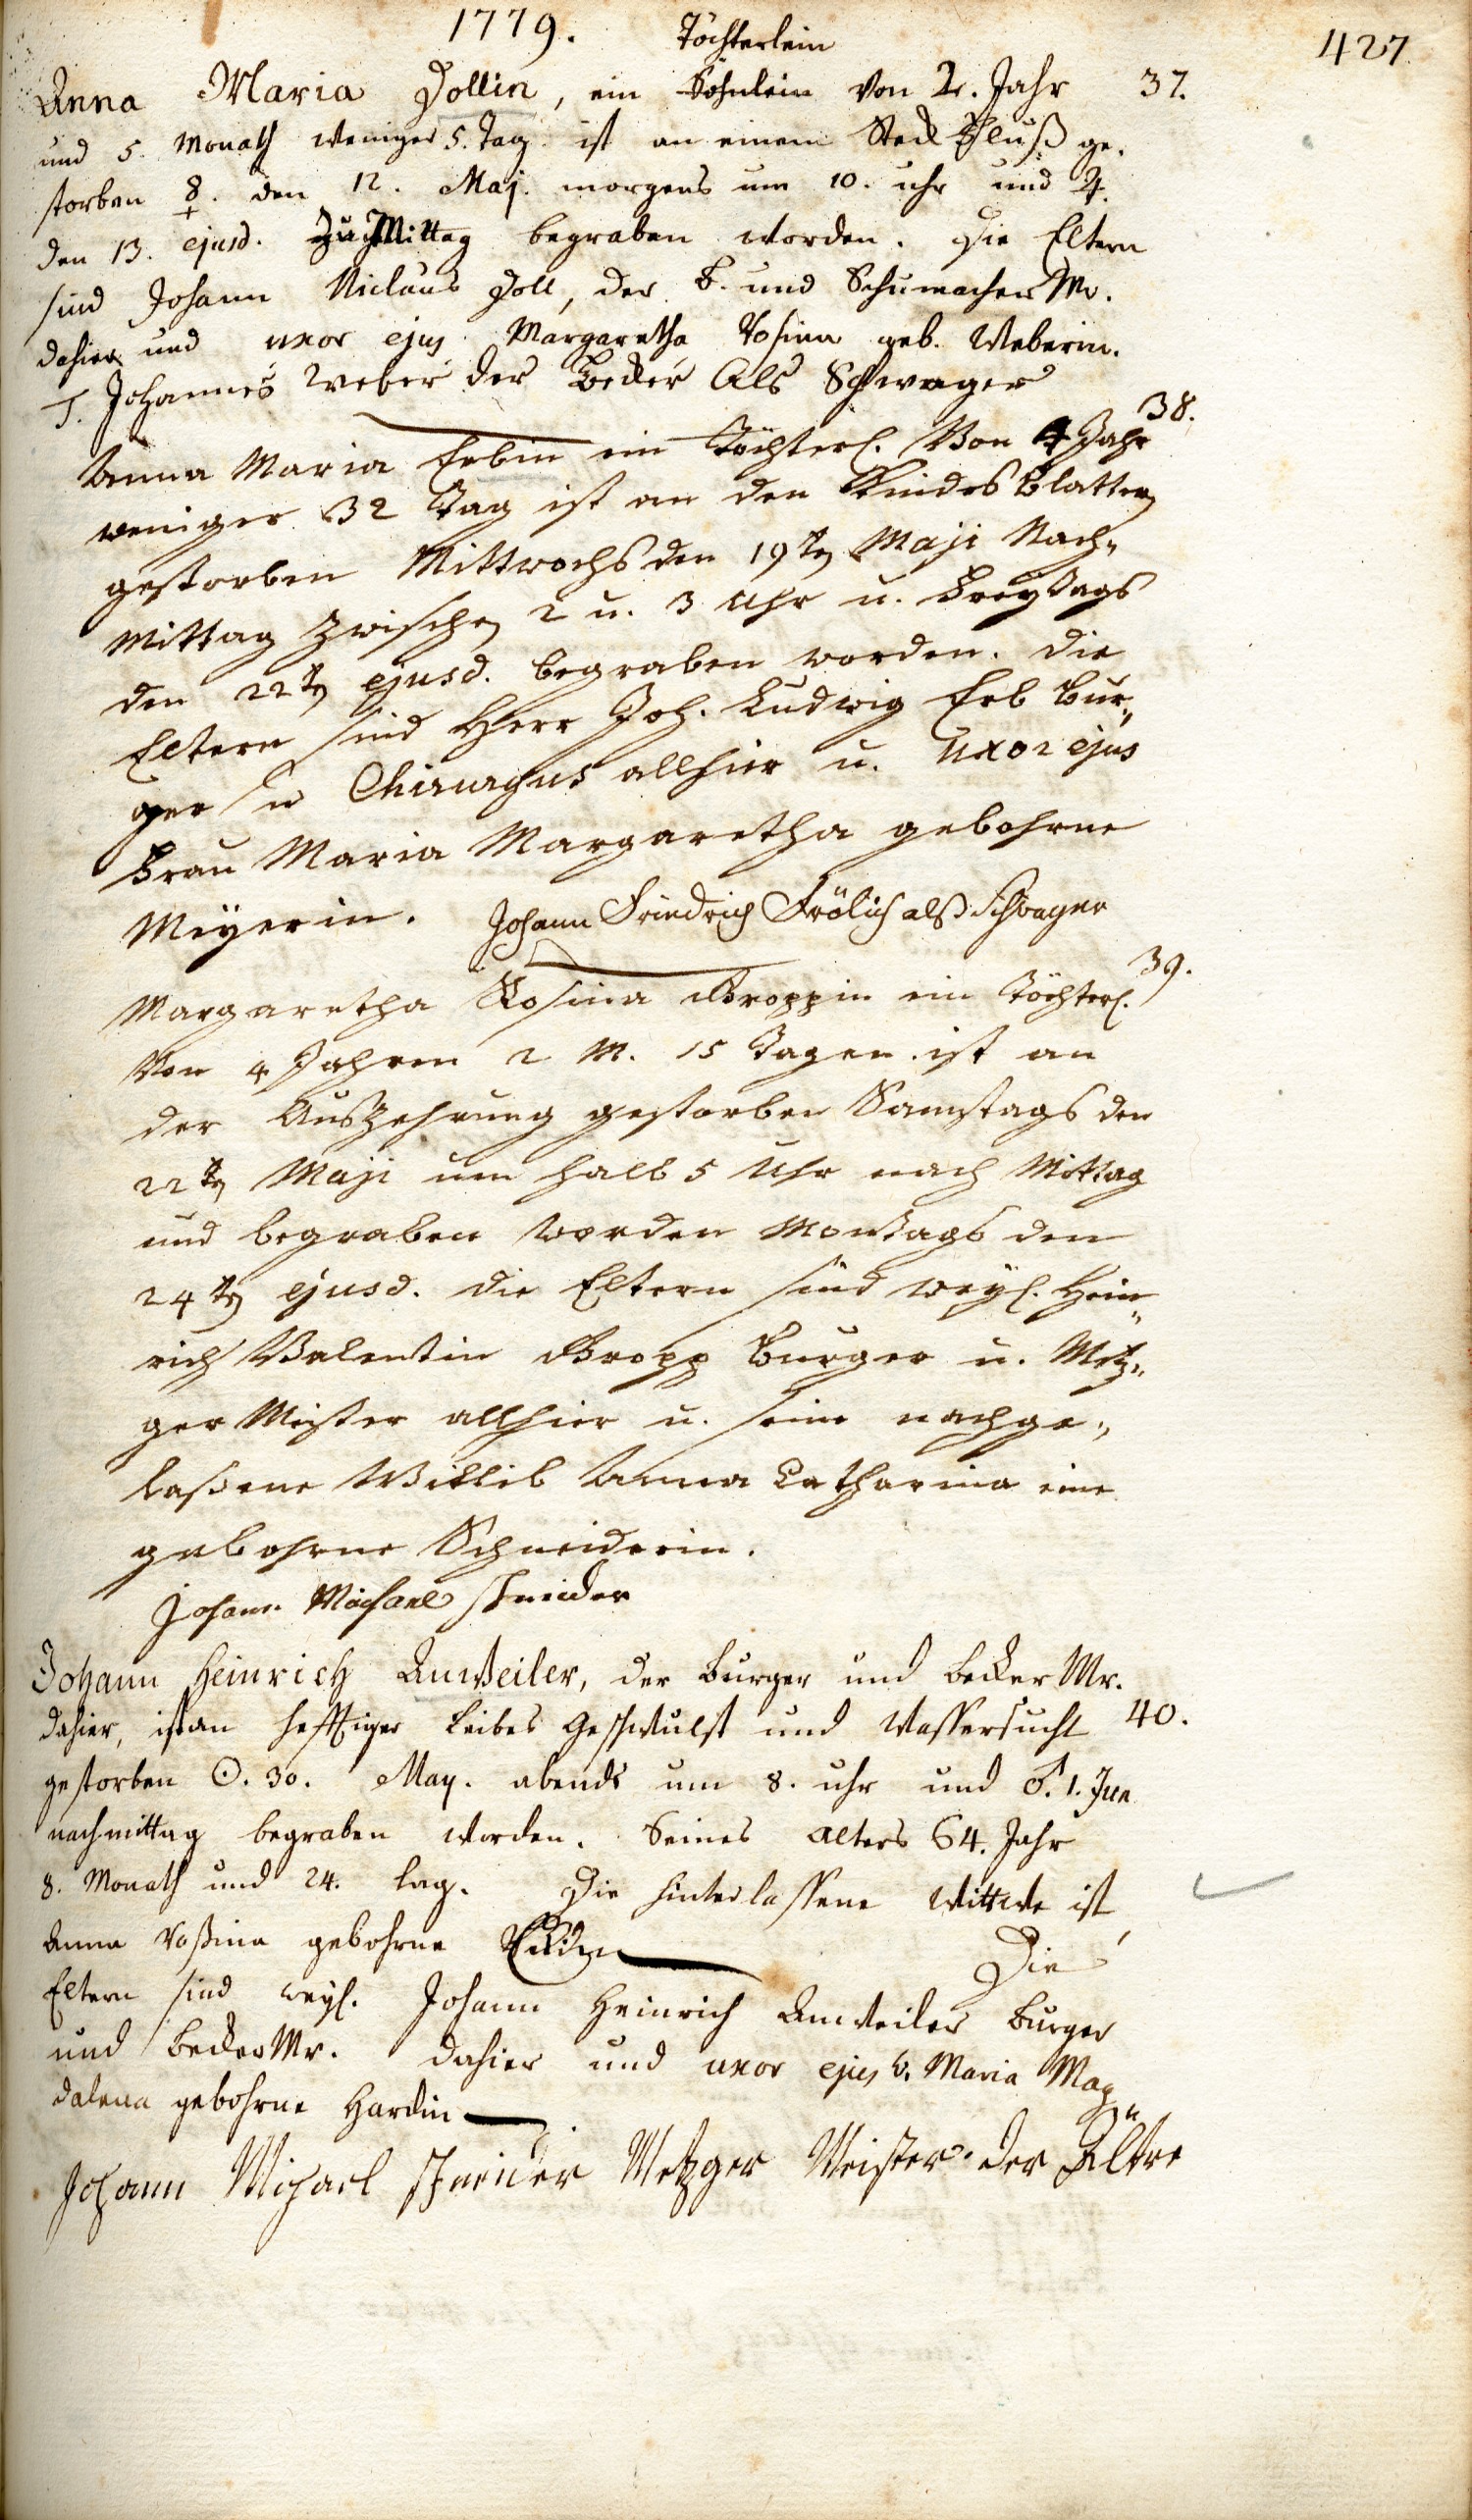 1779.
427.
Töchterlein
Anna Maria Dollin, ein Söhnlein von 2. Jahr 37.
und 5. Monath weniger 5. Tag ist an einem SteckFluß ge-
storben ☿. den 12. Maj. morgens um 10. uhr und ♃.
den 13. ejusd. Mittag begraben worden. Die Eltern
sind Johann Niclaus Doll, der B. und Schumacher Mr.
dahier und uxor ejus Margaretha Rosina geb. Weberin.
T. Johannes Weber der Becker Als Schwager
38.
Anna Maria Erbin ein Töchterl. Von 4 Jahr
weniger 32 Tag ist an den Kindes Blattern
gestorben Mittwochs den 19ten Maji Nach„
mittag zwischen 2 u. 3 Uhr u. Freytags
den 22ten ejusd. begraben worden. die
Eltern sind Herr Joh. Ludwig Erb Bur„
ger u Chirurgus allhier u. Uxor ejus
Frau Maria Margaretha gebohrne
Meÿerin. Johann Friedrich Frölich alß Schwager
39.
Margaretha Rosina Kroppin ein Töchterl.
Von 4 Jahren 2 M. 15 Tagen ist an
der Auszehrung gestorben Samstags den
22ten Maji um halb 5 Uhr nach Mittag
und begraben worden Montags den
24ten ejusd. die Eltern sind weyl. Hein„
rich Valentin Kropp Burger u. Metz„
ger Meister allhier u. seine nachge„
laßene Wittib Anna Catharina eine
gebohrne Schneiderin.
Johann Michael schneider
Johann Heinrich Anweiler, der Burger und Becker Mr.
dahier, ist an hefftiger Leibes Geschwulst und Wassersucht 40.
gestorben ☉. 30. May. abends um 8. uhr und ♂. 1. Jun
nachmittag begraben worden. Seines alters 64. Jahr
8. Monath und 24. tag. Die hinterlassene Wittwe ist
Anna Roßina gebohrne Die
Eltern sind weyl. Johann Heinrich Anweiler Burger
und Becker Mr. dahier und uxor ejus v. Maria Mag„
dalena gebohrne Hardin
Johann Michael schneider Metzger Meister der Ältre